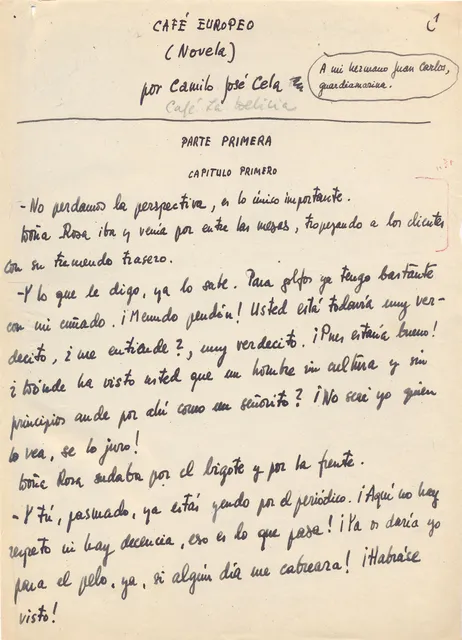 CAFÉ EUROPEO
(Novela)
por Camilo José Cela
Café La Delicia
A mi hermano Juan Carlos,
guardiamarina.
PARTE PRIMERA
CAPITULO PRIMERO
-No perdamos la perspectiva, es lo único importante.
Doña Rosa iba y venía por entre las mesas, tropezando a los clientes
con su tremendo trasero.
-Y lo que le digo, ya lo sabe. Para golfos ya tengo bastante
con mi cuñado. ¡Menudo pendón! Usted está todavía muy ver-
decito, ¿me entiende?, muy verdecito. ¡Pues estaría bueno!
¿Dónde ha visto usted que un hombre sin cultura y sin
principios ande por ahí como un señorito? ¡No seré yo quien
lo vea, se lo juro!
Doña Rosa sudaba por el bigote y por la frente.
-Y tú, pasmado, ya estás yendo por el periódico. ¡Aquí no hay
respeto ni hay decencia, eso es lo que pasa! ¡Ya os daría yo
para el pelo, ya, si algún día me cabreara! ¡Habráse
visto!